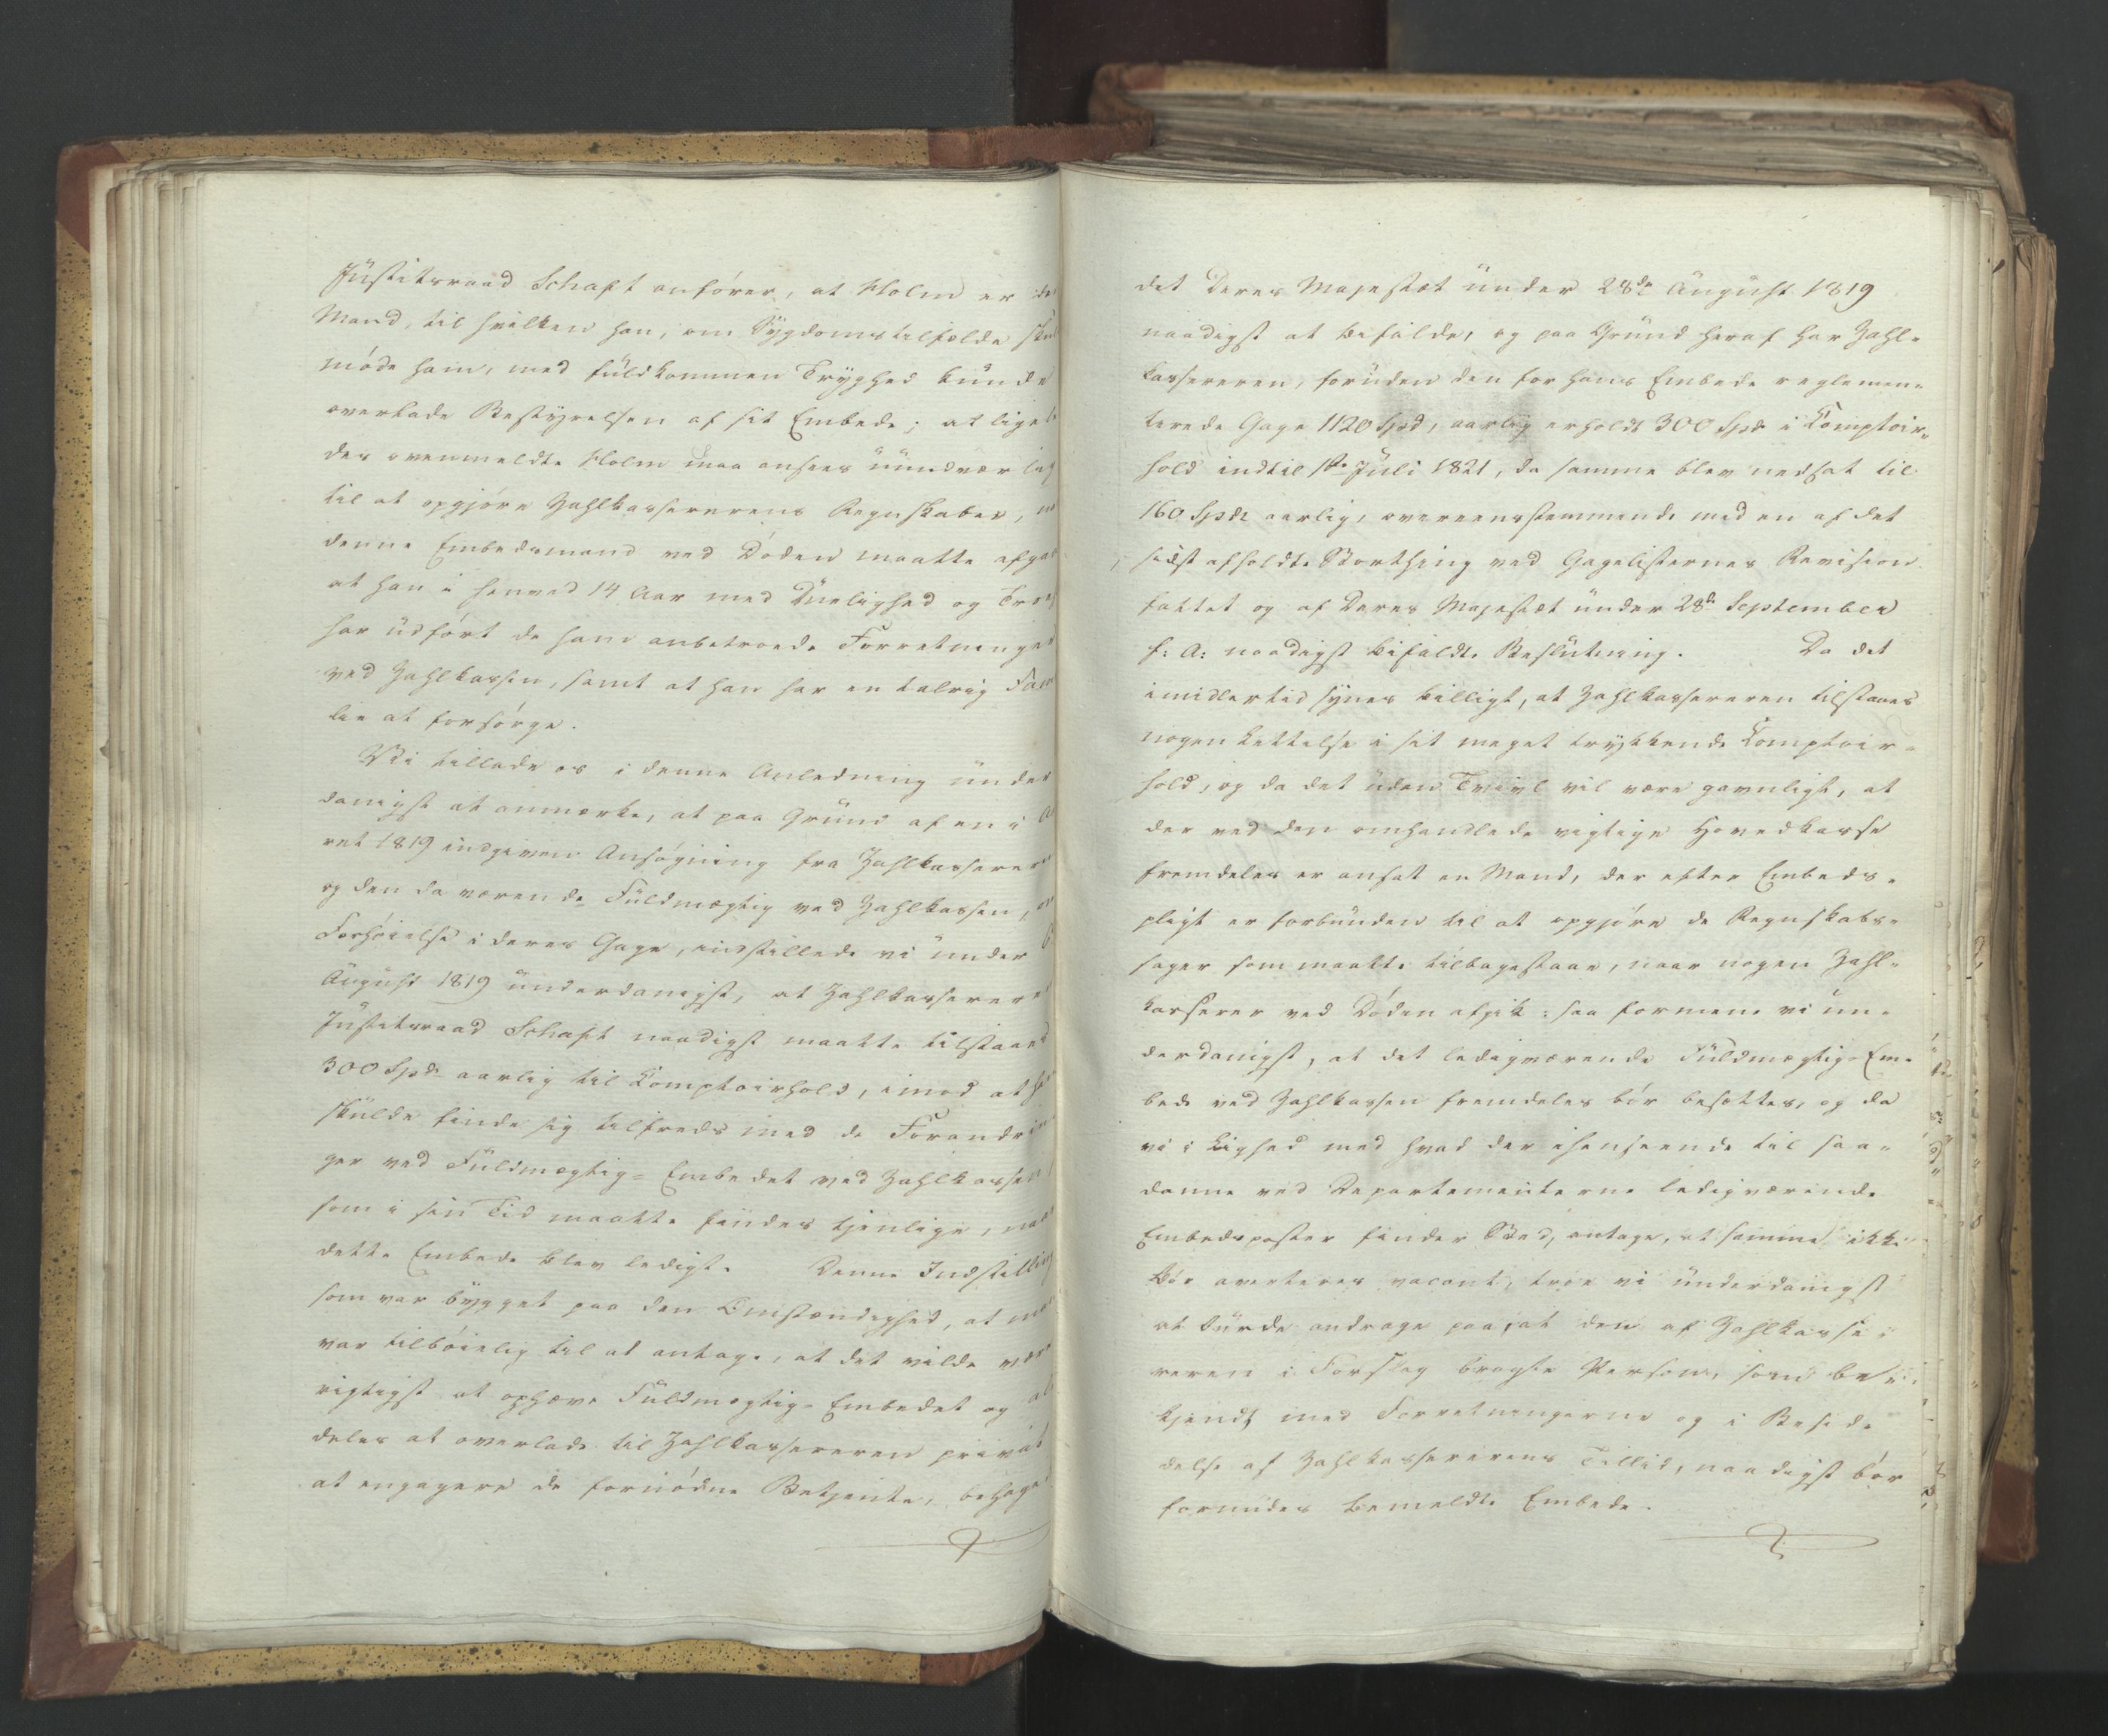 Justitsraad Schaft anfører, at Holm er den
Mand, til hvilken han, om Sygdomstilfælde skul
møde ham, med fuldkommen Tryghed kunde
overlade Bestyrelsen af sit Embede; at lige
des ovenmeldte Holm maa ansees uundvær lig
til at opgjøre Zahlkassererens Regnskaber,
denne Embedsmand ved Døden maatte afgaa
at han i henved 14 Aar med Duelighed og Tro
har udført de ham anbetroede Forretninger
ved Zahlkassen, samt at han har en talrig Fami
lie at forsørge.
Vi tillade os i denne Anledning under
danigst at anmærke, at paa Grund af en i Aa
ret 1819 indgiven Ansøgning fra Zahlkasserer
og den da værende Fuldmægtig ved Zahlkassen, om
Forhøielse i deres Gage, indstillede vi under
August 1819 underdanigst, at Zahlkasserere
Justitsraad Schaft naadigst maatte tilstaaes
300 Spd aarlig til Comptoirhold, imod at han
skulde finde sig tilfreds med de Forandrin
ger ved Fuldmægtig-Embedet ved Zahlkassen
som i sin Tid maatte findes tjenlige, naar
dette Embede blev ledigt. Denne Indstilling
som var bygget paa den Omstændighed, at man
var tilbøielig til at antage, at det vilde være
rigtigst at ophæve Fuldmægtig-Embedet og al
deles at overlade til Zahlkassereren privat
at engagere de fornødne Betjente, behage
det Deres Majestæt under 28de August 1819
naadigst at bifalde, og paa Grund heraf har Zahl-
kassereren, foruden den for hans Embede reglemen-
terede Gage 1120 Spd, aarlig erholdt 300 Spd i Comptoir-
hold indtil 1ste Juli 1821, da samme blev nedsat til
160 Spd aarlig, overeensstemmende med en af det
sidst afholdte Storthing ved Gagelisternes Revision
fattet og af Deres Majestæt under 28de September
f: A: naadigst bifaldt Beslutning. Da det
imidlertid synes billigt, at Zahlkassereren tilstaaes
nogen Lettelse i sit meget trykkende Comptoir-
hold, og da det uden Tvivl vil være gavnligt, at
der ved den omhandlede vigtige Hovedkasse
fremdeles er ansat en Mand, der efter Embeds-
pligt er forbunden til at opgjøre de Regnskabs-
sager som maatte tilbagestaae, naar nogen Zahl-
kasserer ved Døden afgik: saa formene vi un-
derdanigst, at det ledigværende Fuldmægtig-Em-
bede ved Zahlkassen fremdeles bør besættes, og da
vi i Lighed med hvad der ihenseende til saa-
danne ved Departementerne ledigværende
Embedsposter finder Sted, antage, at samme ikke
bør averteres vacant, troe vi underdanigst
at burde andrage paa, at den af Zahlkasse-
reren i Forslag bragte Person, som be-
kjendt med Forretningerne og i Besid-
delse af Zahlkassererens Tillid, naadigst bør
forundes bemeldte Embede.